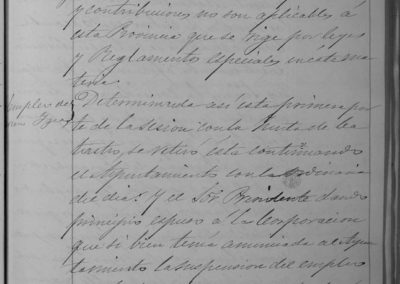 y contribuciones no son aplicables á
esta Provincia que se rige por leyes
y Reglamentos especiales en esta ma
teria.
Empleo de
Determinada así esta primera par
te de la sesion con la Junta de Ca
tastro, se retiró ésta continuando
el Ayuntamiento con la ordinaria
del dia. Y el Sõr Presidente dando
principio espuso á la Corporacion
que si bien tenia anunciada al Ayun
tamiento la suspension del empleo